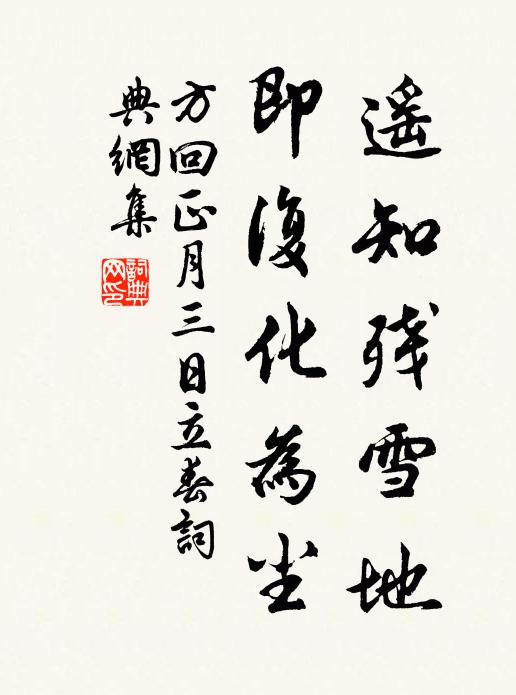 遥知残雪地
即復化為尘
方回正月三日立春詞
典網集
詞典
网印